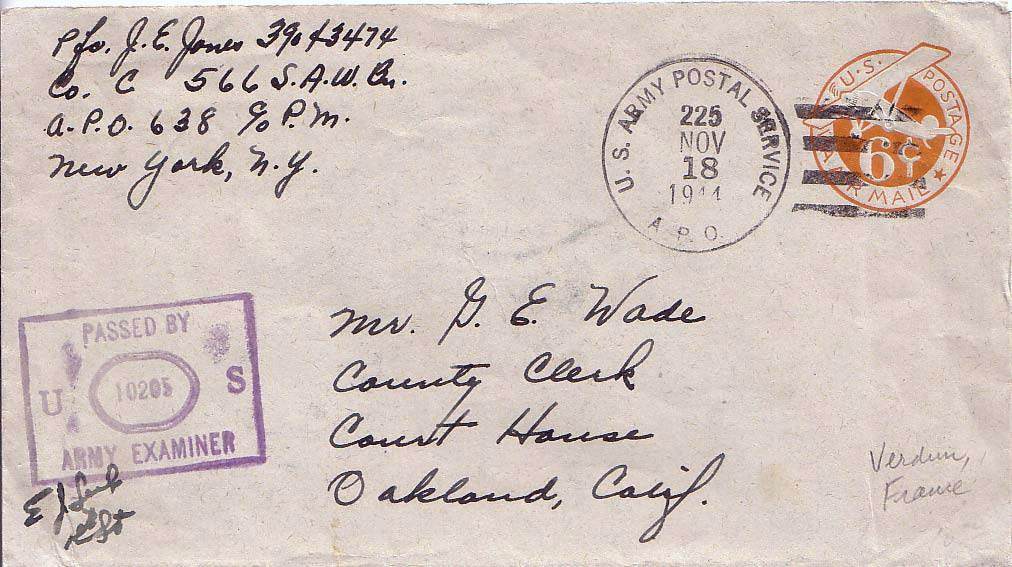 Pfc. J. E. Jones 39043474
Co. C 566 S.A.W. Bn.
A.P.O. 638 c/o P.M.
New York, N.Y.
U.S. ARMY POSTAL SERVICE
225
NOV
18
1944
A.P.O.
U.S. POSTAGE
6¢
AIR MAIL
PASSED BY
U 10205 S
ARMY EXAMINER
E J
Mr. G. E. Wade
County Clerk
Court House
Oakland, Calif.
Verdun,
France